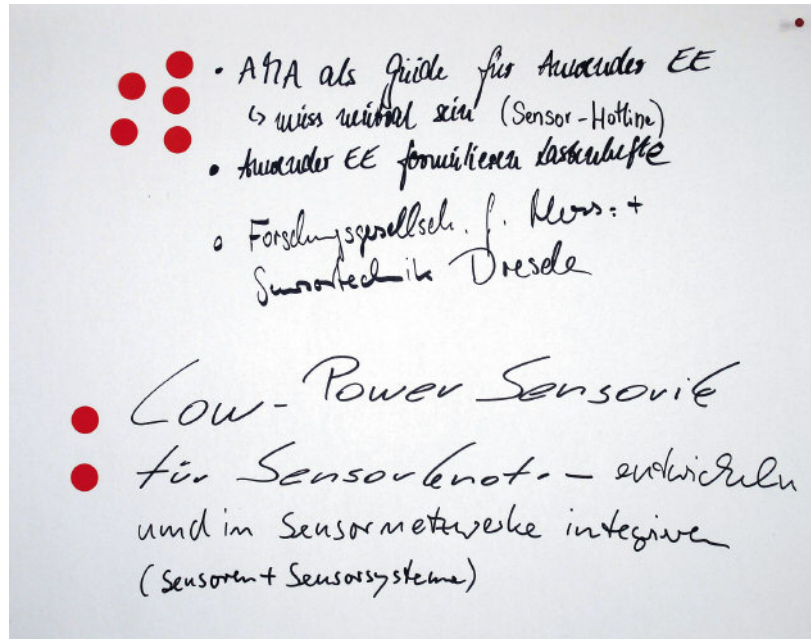 • AMA als Guide für Anwender EE
↳ muss neutral sein (Sensor-Hotline)
• Anwender EE formulieren Lastenhefte
• Forschungsgesellsch. f. Mess- +
Sensortechnik Dresden
Low-Power Sensorik
für Sensorknot. – entwickeln
und in Sensornetzwerke integrieren
(Sensoren + Sensorsysteme)